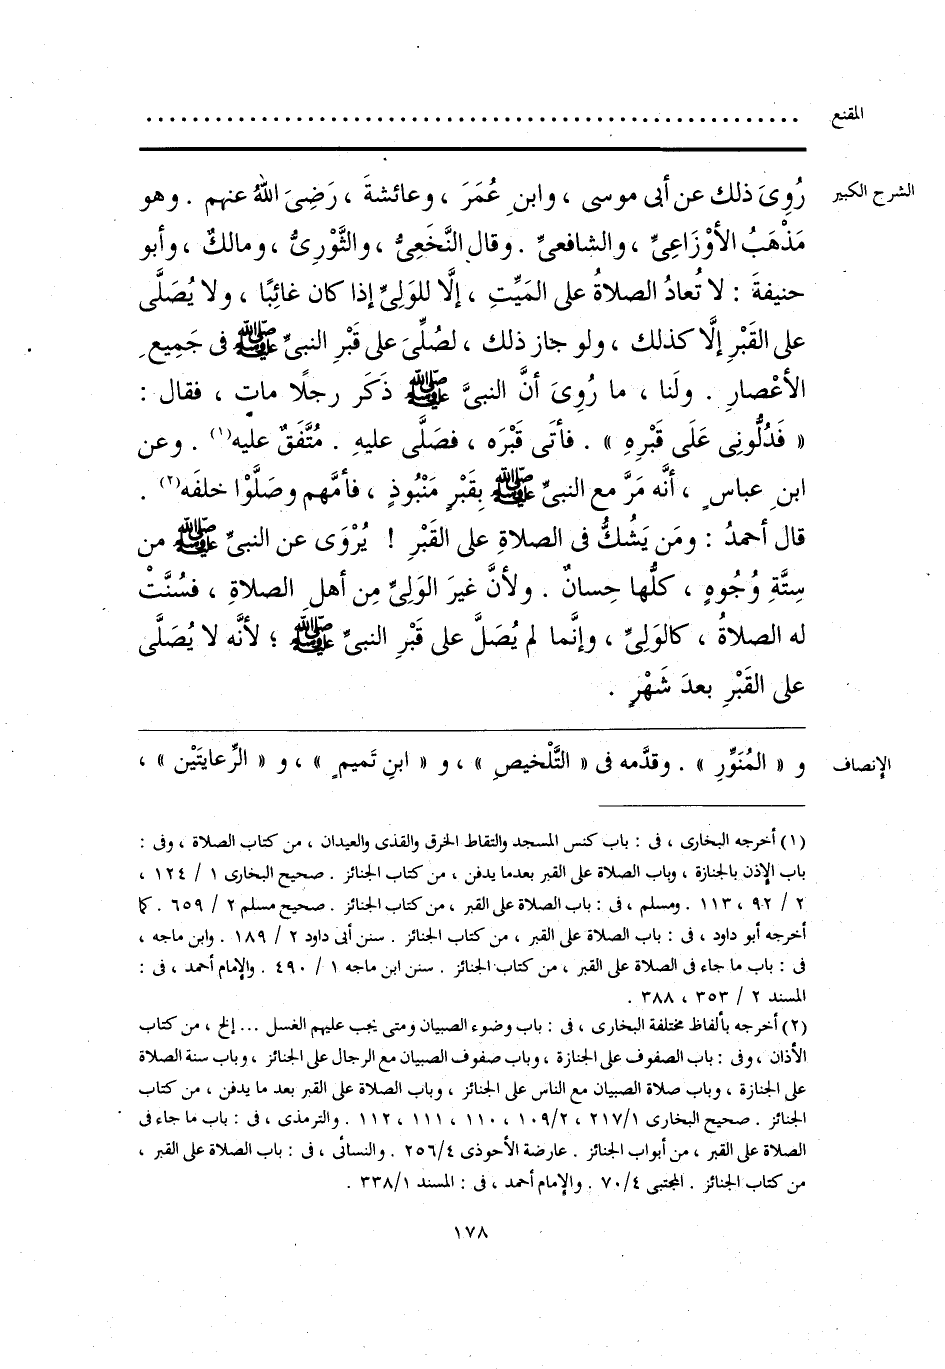 المقنع ........................................................
الشرح الكبير رُوِىَ ذلك عن أبى موسى ، وابنِ عُمَرَ ، وعائشةَ ، رَضِىَ اللهُ عنهم . وهو
مَذْهَبُ الأوْزَاعِىِّ ، والشافعىِّ . وقال النَّخَعِىُّ ، والثَّوْرِىُّ ، ومالكٌ ، وأبو
حنيفةَ : لا تُعادُ الصلاةُ على المَيِّتِ ، إلَّا للوَلِىِّ إذا كان غائِبًا ، ولا يُصَلَّى
على القَبْرِ إلَّا كذلك ، ولو جاز ذلك ، لصُلِّىَ على قَبْرِ النبىِّ ﷺ فى جَمِيعِ
الأعْصارِ . ولَنا ، ما رُوِىَ أنَّ النبىَّ ﷺ ذَكَر رجلًا مات ، فقال :
« فَدُلُّونِى عَلَى قَبْرِهِ » . فأتَى قَبْرَه ، فصَلَّى عليهِ . مُتَّفَقٌ عليه(١) . وعن
ابنِ عباسٍ ، أنَّه مَرَّ مع النبىِّ ﷺ بِقَبْرٍ مَنْبُوذٍ ، فأمَّهم وصَلَّوْا خلفَه(٢) .
قال أحمدُ : ومَن يَشُكُّ فى الصلاةِ على القَبْرِ ! يُرْوَى عن النبىِّ ﷺ من
سِتَّةِ وُجُوهٍ ، كلُّها حِسانٌ . ولأنَّ غيرَ الوَلِىِّ مِن أهلِ الصلاةِ ، فسُنَّتْ
له الصلاةُ ، كالوَلِىِّ ، وإنَّما لم يُصَلَّ على قَبْرِ النبىِّ ﷺ ؛ لأنَّه لا يُصَلَّى
على القَبْرِ بعدَ شَهْرٍ .
الإنصاف و « المُنَوِّرِ » . وقدَّمه فى « التَّلْخيصِ » ، و « ابنِ تَميمٍ » ، و « الرِّعايتَيْن » ،
(١) أخرجه البخارى ، فى : باب كنس المسجد والتقاط الخرق والقذى والعيدان ، من كتاب الصلاة ، وفى :
باب الإذن بالجنازة ، وباب الصلاة على القبر بعدما يدفن ، من كتاب الجنائز . صحيح البخارى ١ / ١٢٤ ،
٢ / ٩٢ ، ١١٣ . ومسلم ، فى : باب الصلاة على القبر ، من كتاب الجنائز . صحيح مسلم ٢ / ٦٥٩ . كما
أخرجه أبو داود ، فى : باب الصلاة على القبر ، من كتاب الجنائز . سنن أبى داود ٢ / ١٨٩ . وابن ماجه ،
فى : باب ما جاء فى الصلاة على القبر ، من كتاب الجنائز . سنن ابن ماجه ١ / ٤٩٠ . والإمام أحمد ، فى :
المسند ٢ / ٣٥٣ ، ٣٨٨ .
(٢) أخرجه بألفاظ مختلفة البخارى ، فى : باب وضوء الصبيان ومتى يجب عليهم الغسل ... إلخ ، من كتاب
الأذان ، وفى : باب الصفوف على الجنازة ، وباب صفوف الصبيان مع الرجال على الجنائز ، وباب سنة الصلاة
على الجنازة ، وباب صلاة الصبيان مع الناس على الجنائز ، وباب الصلاة على القبر بعد ما يدفن ، من كتاب
الجنائز . صحيح البخارى ٢١٧/١ ، ١٠٩/٢ ، ١١٠ ، ١١١ ، ١١٢ . والترمذى ، فى : باب ما جاء فى
الصلاة على القبر ، من أبواب الجنائز . عارضة الأحوذى ٢٥٦/٤ . والنسائى ، فى : باب الصلاة على القبر ،
من كتاب الجنائز . المجتبى ٧٠/٤ . والإمام أحمد ، فى : المسند ٣٣٨/١ .
١٧٨